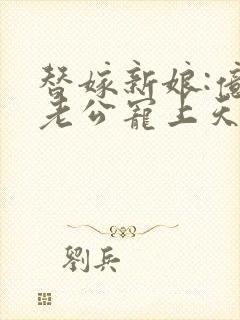 替嫁新娘:億
老公寵上天
劉兵